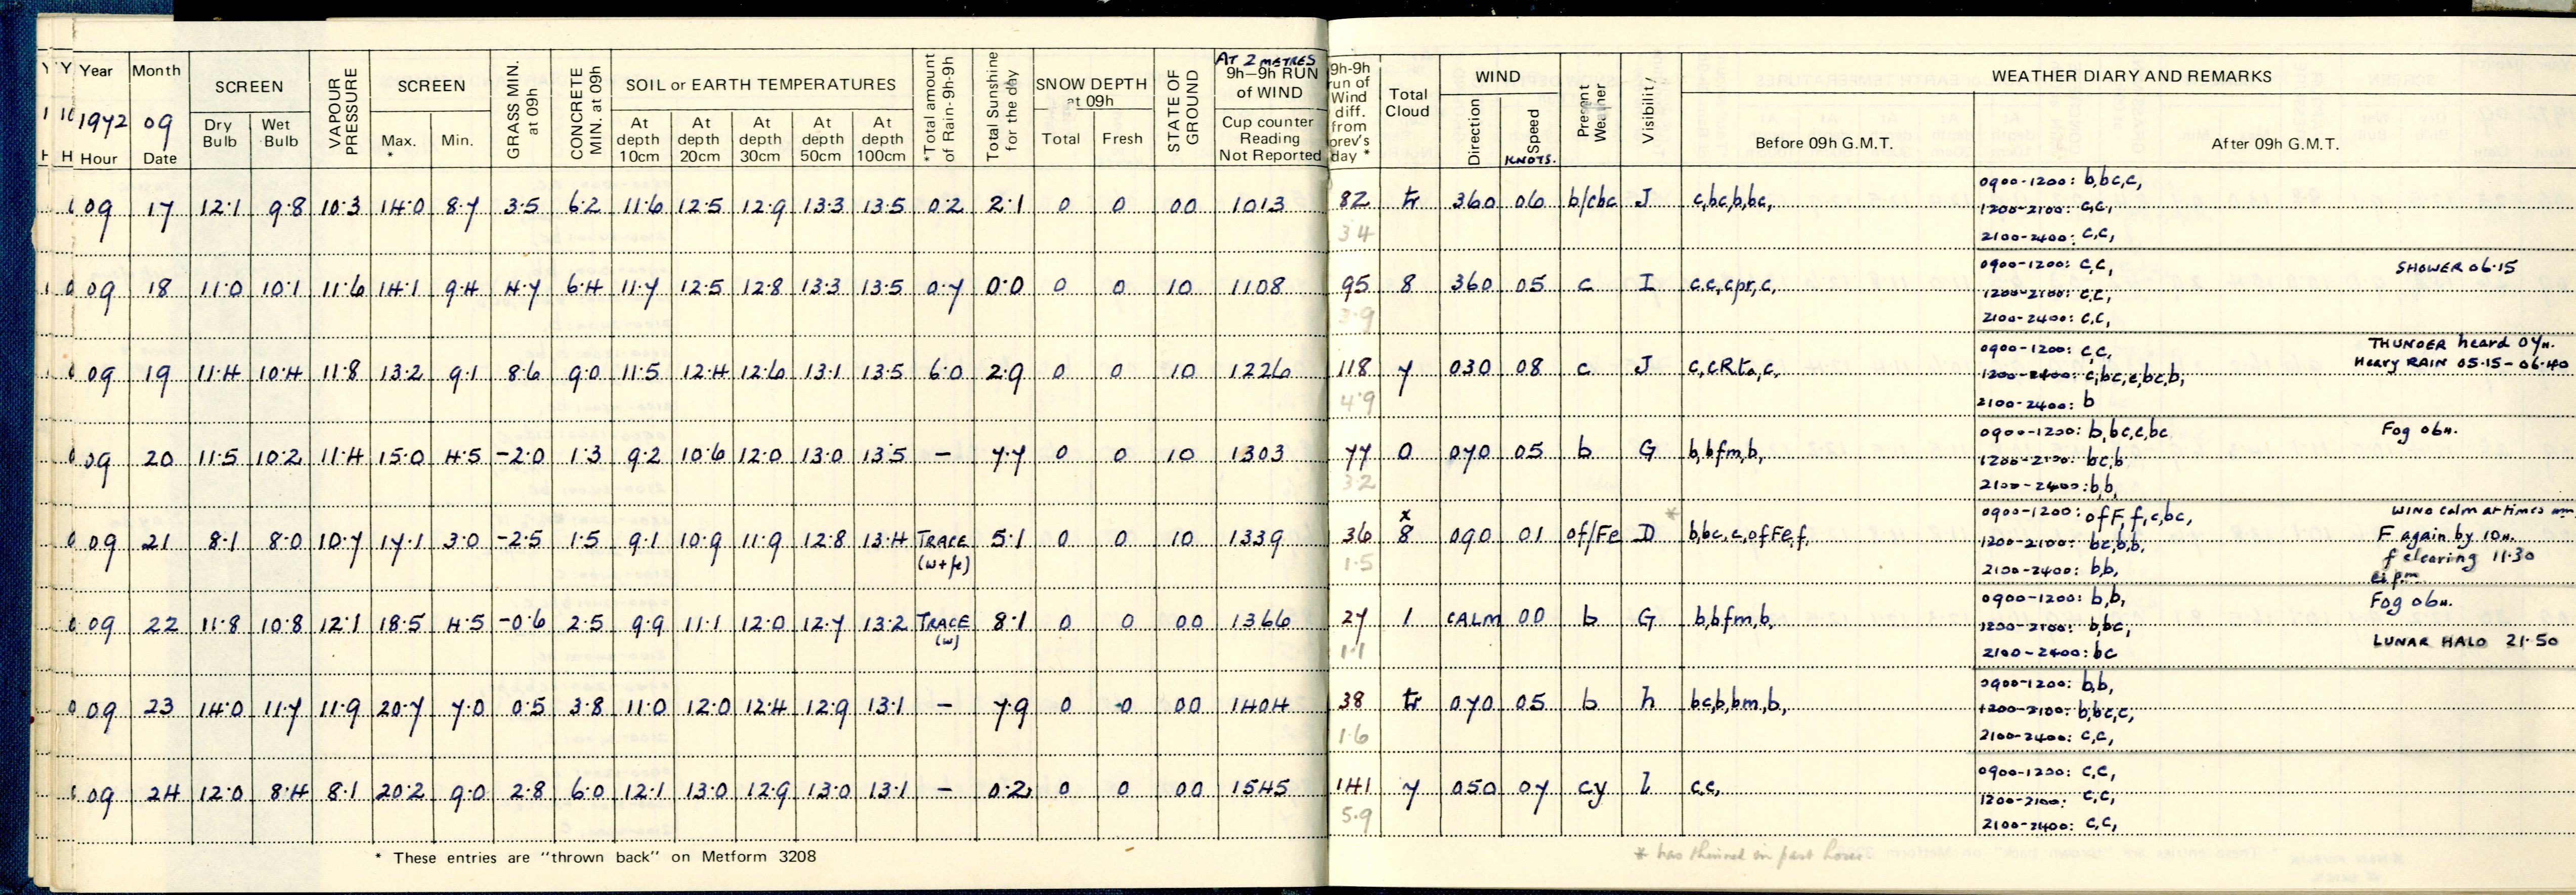 Year Month SCREEN VAPOUR PRESSURE SCREEN GRASS MIN. at 09h CONCRETE MIN. at 09h SOIL or EARTH TEMPERATURES *Total amount of Rain-9h-9h Total Sunshine for the day SNOW DEPTH at 09h STATE OF GROUND AT 2 METRES 9h-9h RUN of WIND
1972 09 Dry Bulb Wet Bulb Max. * Min. At depth 10cm At depth 20cm At depth 30cm At depth 50cm At depth 100cm Total Fresh Cup counter Reading Not Reported
Hour Date
9h-9h run of Wind diff. from prev's day * Total Cloud WIND Direction Speed KNOTS. Present Weather Visibility WEATHER DIARY AND REMARKS
Before 09h G.M.T. After 09h G.M.T.
09 17 12.1 9.8 10.3 14.0 8.7 3.5 6.2 11.6 12.5 12.9 13.3 13.5 0.2 2.1 0 0 00 1013 82 tr 360 06 b/cbc J c,bc,b,bc, 0900-1200: b,bc,c,
1200-2100: c,c,
34 2100-2400: c,c,
09 18 11.0 10.1 11.6 14.1 9.4 4.7 6.4 11.7 12.5 12.8 13.3 13.5 0.7 0.0 0 0 10 1108 95 8 360 05 c I c,c,cpr,c, 0900-1200: c,c, SHOWER 06.15
1200-2100: c,c,
3.9 2100-2400: c,c,
09 19 11.4 10.4 11.8 13.2 9.1 8.6 9.0 11.5 12.4 12.6 13.1 13.5 6.0 2.9 0 0 10 1226 118 7 030 08 c J c,cRto,c, 0900-1200: c,c, THUNDER heard 07H.
Heavy RAIN 05.15-06.40
1200-2400: c,bc,c,bc,b,
4.9 2100-2400: b
09 20 11.5 10.2 11.4 15.0 4.5 -2.0 1.3 9.2 10.6 12.0 13.0 13.5 - 7.7 0 0 10 1303 77 0 070 05 b G b,bfm,b, 0900-1200: b,bc,c,bc Fog 06H.
1200-2100: bc,b
3.2 2100-2400: b,b,
09 21 8.1 8.0 10.7 17.1 3.0 -2.5 1.5 9.1 10.9 11.9 12.8 13.4 TRACE (w+fe) 5.1 0 0 10 1339 36 x 8 090 01 of/Fe D * b,bc,c,ofFe,f, 0900-1200: ofF,f,c,bc, WIND calm at times
1200-2100: bc,b,b, F again by 10H.
f clearing 11.30
1.5 2100-2400: b,b,
09 22 11.8 10.8 12.1 18.5 4.5 -0.6 2.5 9.9 11.1 12.0 12.7 13.2 TRACE (w) 8.1 0 0 00 1366 27 1 CALM 00 b G b,bfm,b, 0900-1200: b,b, Fog 06H.
1200-2100: b,bc,
1.1 2100-2400: bc LUNAR HALO 21.50
09 23 14.0 11.7 11.9 20.7 7.0 0.5 3.8 11.0 12.0 12.4 12.9 13.1 - 7.9 0 0 00 1404 38 tr 070 05 b h bc,b,bm,b, 0900-1200: b,b,
1200-2100: b,bc,c,
1.6 2100-2400: c,c,
09 24 12.0 8.4 8.1 20.2 9.0 2.8 6.0 12.1 13.0 12.9 13.0 13.1 - 0.2 0 0 00 1545 141 7 050 07 cy l c,c, 0900-1200: c,c,
1200-2100: c,c,
5.9 2100-2400: c,c,
* These entries are "thrown back" on Metform 3208
* has thinned in past hour